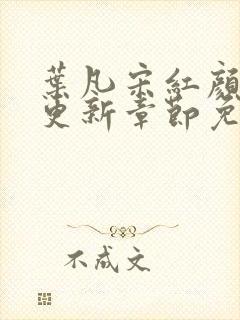 葉凡宋紅顏
更新章節免
不成文